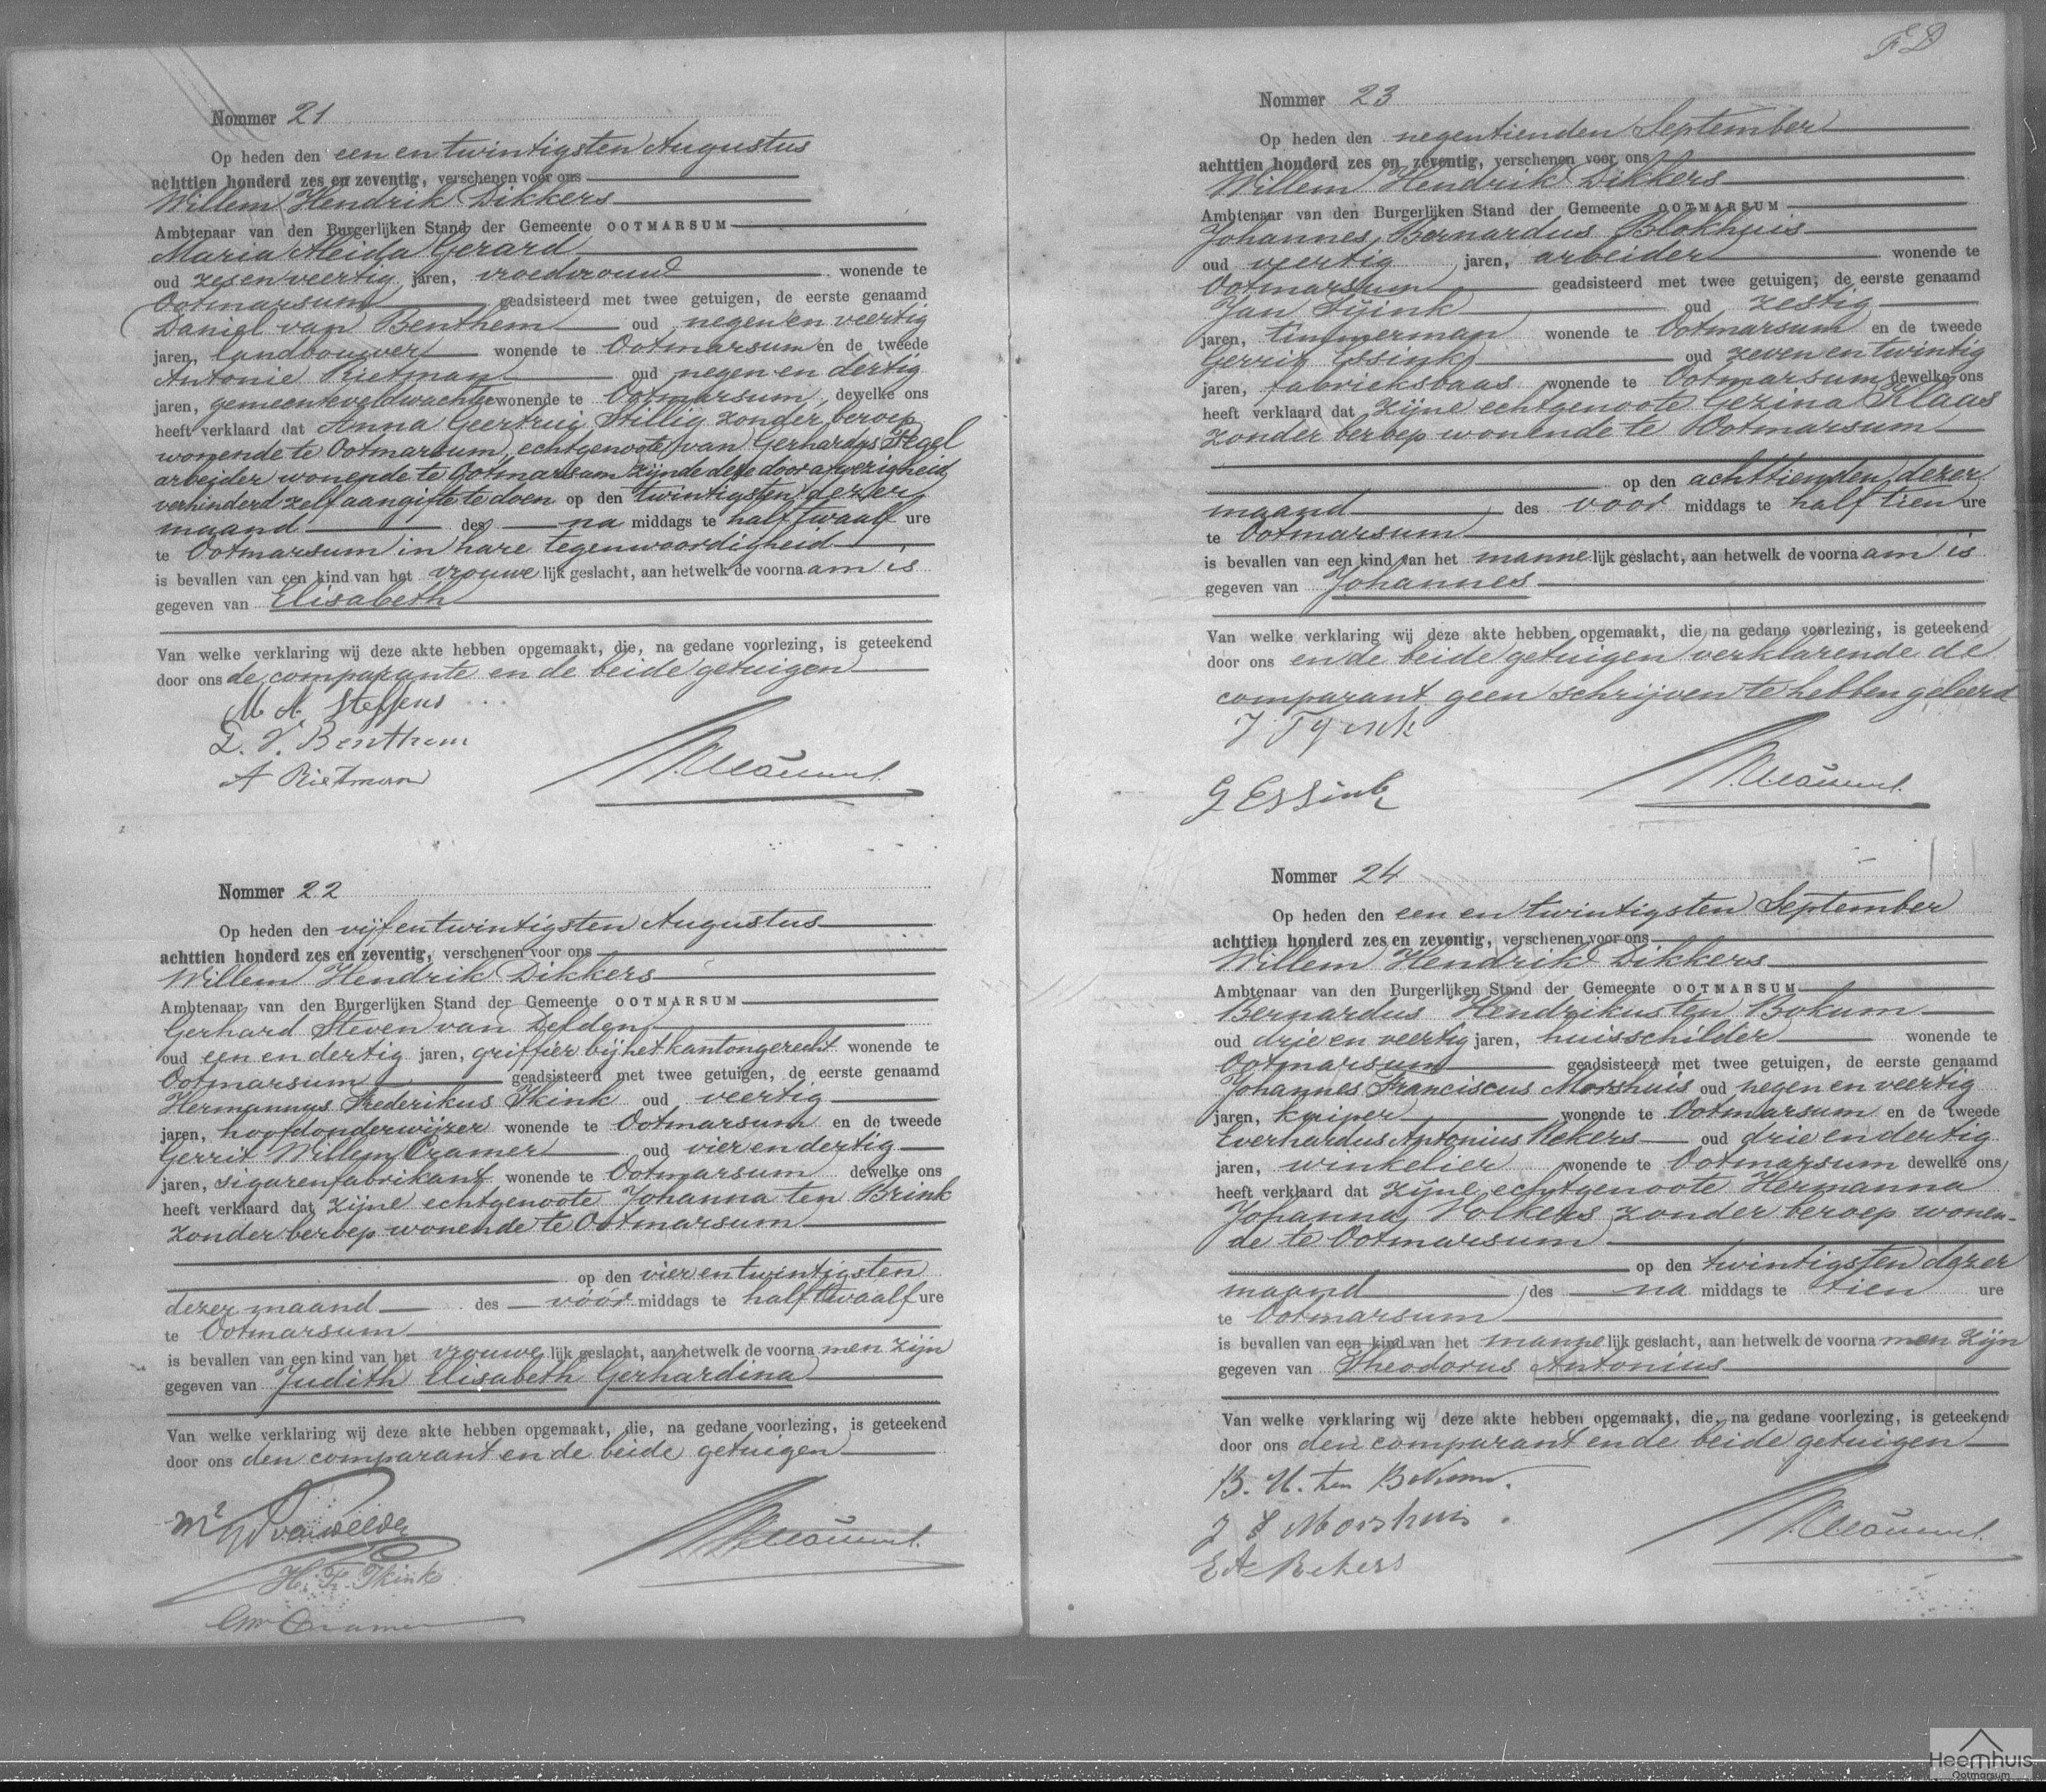 Nommer 21
Op heden den een en twintigsten Augustus
achttien honderd zes en zeventig, verschenen voor ons
Willem Hendrik Dikkers
Ambtenaar van den Burgerlijken Stand der Gemeente OOTMARSUM
Maria Aleida Gerard
oud zes en veertig jaren, vroedvrouw wonende te
Ootmarsum geadsisteerd met twee getuigen, de eerste genaamd
Daniel van Benthem oud negen en veertig
jaren, landbouwer wonende te Ootmarsum en de tweede
Antonie Rietman oud negen en dertig
jaren, gemeenteveldwachter wonende te Ootmarsum, dewelke ons
heeft verklaard dat Anna Geertrui Stillig zonder beroep
wonende te Ootmarsum, echtgenoote van Gerhardus Fegel
arbeider wonende te Ootmarsum zijnde deze door afwezigheid
verhinderd zelf aangifte te doen op den twintigsten dezer
maand des na middags te half twaalf ure
te Ootmarsum in hare tegenwoordigheid
is bevallen van een kind van het vrouwelijk geslacht, aan hetwelk de voornaam is
gegeven van Elisabeth
Van welke verklaring wij deze akte hebben opgemaakt, die, na gedane voorlezing, is geteekend
door ons de comparante en de beide getuigen
M A Steffens
D. V. Benthem
A Rietman
Nommer 22
Op heden den vijf en twintigsten Augustus
achttien honderd zes en zeventig, verschenen voor ons
Willem Hendrik Dikkers
Ambtenaar van den Burgerlijken Stand der Gemeente OOTMARSUM
Gerhard Steven van Delden
oud een en dertig jaren, griffier bij het kantongerecht wonende te
Ootmarsum geadsisteerd met twee getuigen, de eerste genaamd
Hermannus Frederikus Ikink oud veertig
jaren, hoofdonderwijzer wonende te Ootmarsum en de tweede
Gerrit Willem Cramer oud vier en dertig
jaren, sigarenfabrikant wonende te Ootmarsum dewelke ons
heeft verklaard dat zijne echtgenoote Johanna ten Brink
zonder beroep wonende te Ootmarsum
op den vier en twintigsten
dezer maand des vóór middags te half twaalf ure
te Ootmarsum
is bevallen van een kind van het vrouwelijk geslacht, aan hetwelk de voornamen zijn
gegeven van Judith Elisabeth Gerhardina
Van welke verklaring wij deze akte hebben opgemaakt, die, na gedane voorlezing, is geteekend
door ons den comparant en de beide getuigen
H. F. Ikink
GW Cramer
FD
Nommer 23
Op heden den negentienden September
achttien honderd zes en zeventig, verschenen voor ons
Willem Hendrik Dikkers
Ambtenaar van den Burgerlijken Stand der Gemeente OOTMARSUM
Johannes Bernardus Blokhuis
oud veertig jaren, arbeider wonende te
Ootmarsum geadsisteerd met twee getuigen, de eerste genaamd
Jan oud zestig
jaren, timmerman wonende te Ootmarsum en de tweede
Gerrit Essink oud zeven en twintig
jaren, fabrieksbaas wonende te Ootmarsum, dewelke ons
heeft verklaard dat zijne echtgenoote Gezina Klaas
zonder beroep wonende te Ootmarsum
op den achttienden dezer
maand des voor middags te half tien ure
te Ootmarsum
is bevallen van een kind van het mannelijk geslacht, aan hetwelk de voornaam is
gegeven van Johannes
Van welke verklaring wij deze akte hebben opgemaakt, die, na gedane voorlezing, is geteekend
door ons en de beide getuigen verklarende de
comparant geen schrijven te hebben geleerd
G Essink
Nommer 24
Op heden den een en twintigsten September
achttien honderd zes en zeventig, verschenen voor ons
Willem Hendrik Dikkers
Ambtenaar van den Burgerlijken Stand der Gemeente OOTMARSUM
Bernardus Hendrikus ten Bokum
oud drie en veertig jaren, huisschilder wonende te
Ootmarsum geadsisteerd met twee getuigen, de eerste genaamd
Johannes Franciscus Morshuis oud negen en veertig
jaren, kuiper wonende te Ootmarsum en de tweede
Everhardus Antonius Rekers oud drie en dertig
jaren, winkelier wonende te Ootmarsum dewelke ons
heeft verklaard dat zijne echtgenoote Hermanna
Johanna Volkers zonder beroep wonen-
de te Ootmarsum
op den twintigsten dezer
maand des na middags te tien ure
te Ootmarsum
is bevallen van een kind van het mannelijk geslacht, aan hetwelk de voornamen zijn
gegeven van Theodorus Antonius
Van welke verklaring wij deze akte hebben opgemaakt, die, na gedane voorlezing, is geteekend
door ons den comparant en de beide getuigen
B. H. ten Bokum.
J F Morshuis.
E A Rekers
Heemhuis
Ootmarsum